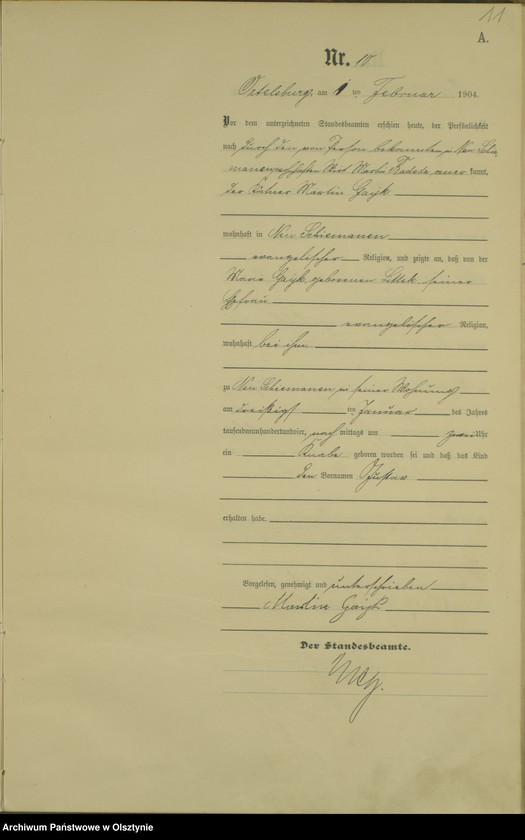 11
A.
Nr. 10
Ortelsburg, am 1 ten Februar 1904.
Vor dem unterzeichneten Standesbeamten erschien heute, der Persönlichkeit
nach durch den von Person bekannten, in Neu Schie-
manen wohnhaften Wirt Martin kannt,
der Kätner Martin Gajk
wohnhaft in Neu Schiemanen
evangelischer Religion, und zeigte an, daß von der
Marie Gajk geborenen Littek seiner
Ehefrau
evangelischer Religion,
wohnhaft bei ihm
zu Neu Schiemanen in seiner Wohnung
am dreißigsten Januar des Jahres
tausendneunhundertundvier, nach mittags um zwei Uhr
ein Knabe geboren worden sei und daß das Kind
den Vornamen Gustav
erhalten habe.
Vorgelesen, genehmigt und unterschrieben
Martin Gajk
Der Standesbeamte.
Archiwum Państwowe w Olsztynie